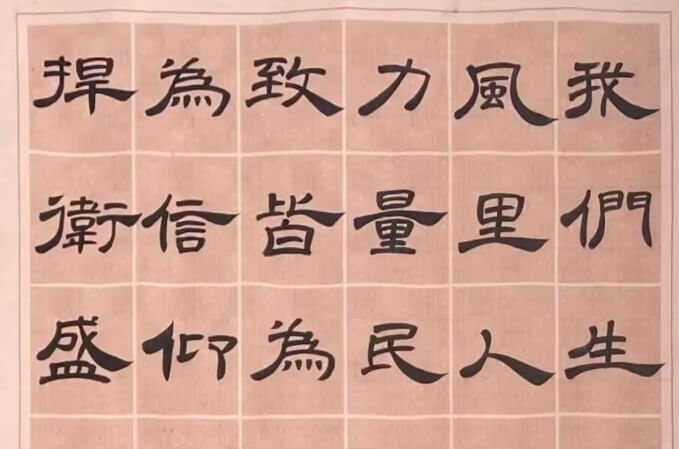 我們生
風里人
力量民
致皆為
為信仰
捍衛盛